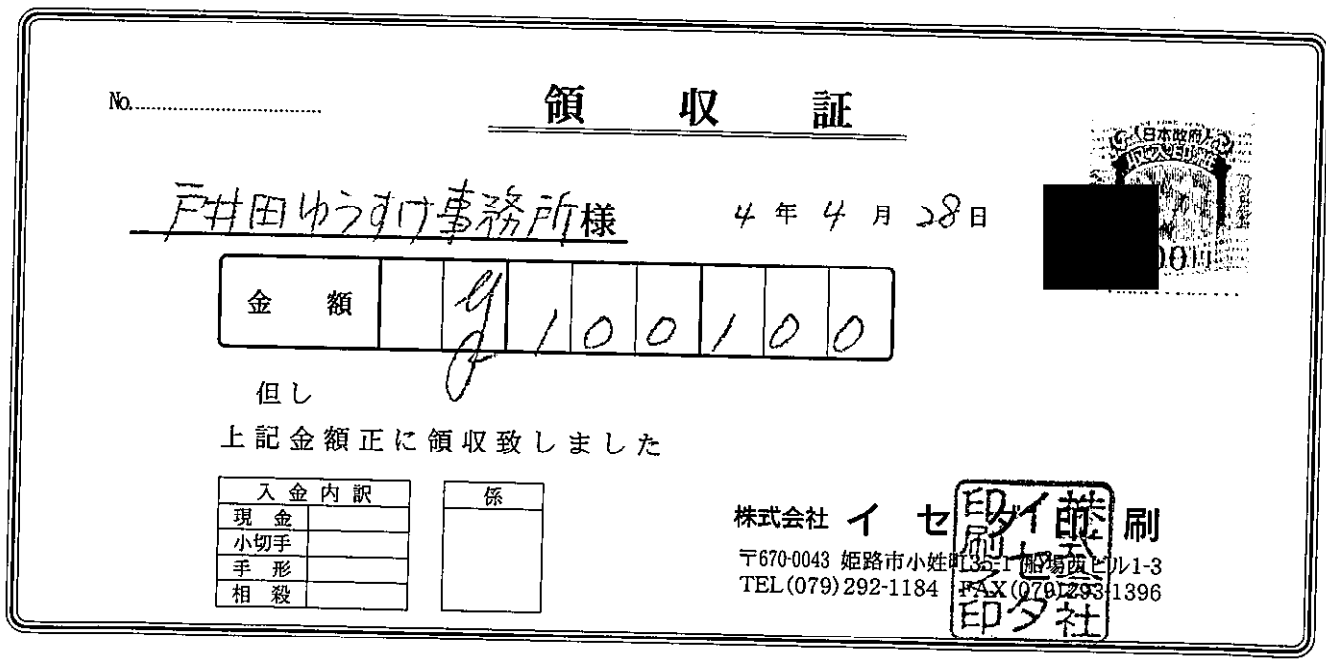 No.
領収証
日本政府
戸井田ゆうすけ事務所様
4年4月28日
00円
金額 ¥100100
但し
上記金額正に領収致しました
入金内訳
現金
小切手
手形
相殺
係
株式会社イセダ印刷
〒670-0043 姫路市小姓町35-1 船場西ビル1-3
TEL(079)292-1184 FAX(079)293-1396
株式会社
イセダ
印刷之印